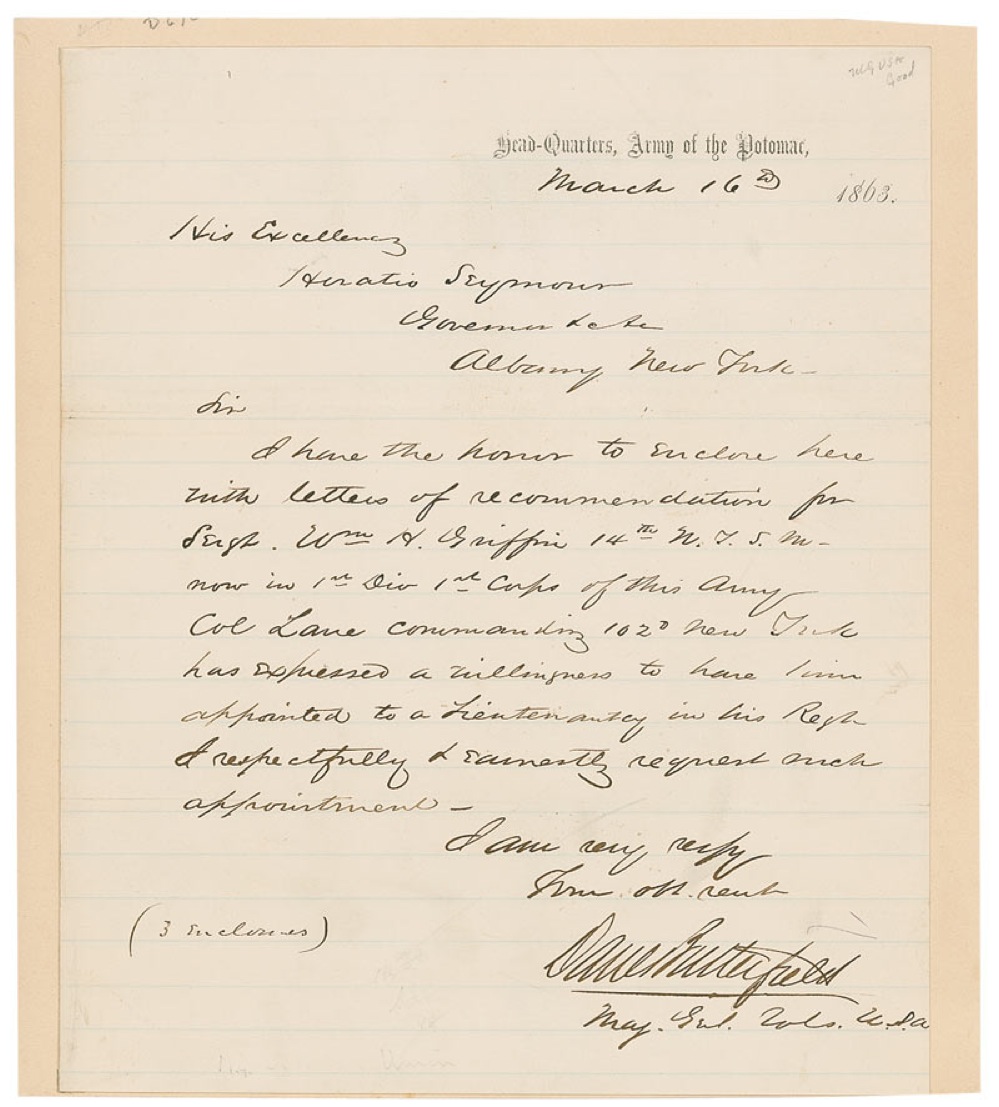 Head-Quarters, Army of the Potomac,
March 16th 1863.
His Excellency
Horatio Seymour
Governor &c &c
Albany New York-
Sir
I have the honor to enclose here
with letters of recommendation for
Sergt. Wm H. Griffin 14th N.Y.S.M-
now in 1st Div 1st Corps of this Army
Col Lane commanding 102d New York
has expressed a willingness to have him
appointed to a Lieutenantcy in his Regt
I respectfully & earnestly request such
appointment -
I am very respy
Your obt. servt
(3 enclosures)
Danl Butterfield
Maj. Genl. Vols. U.S.A